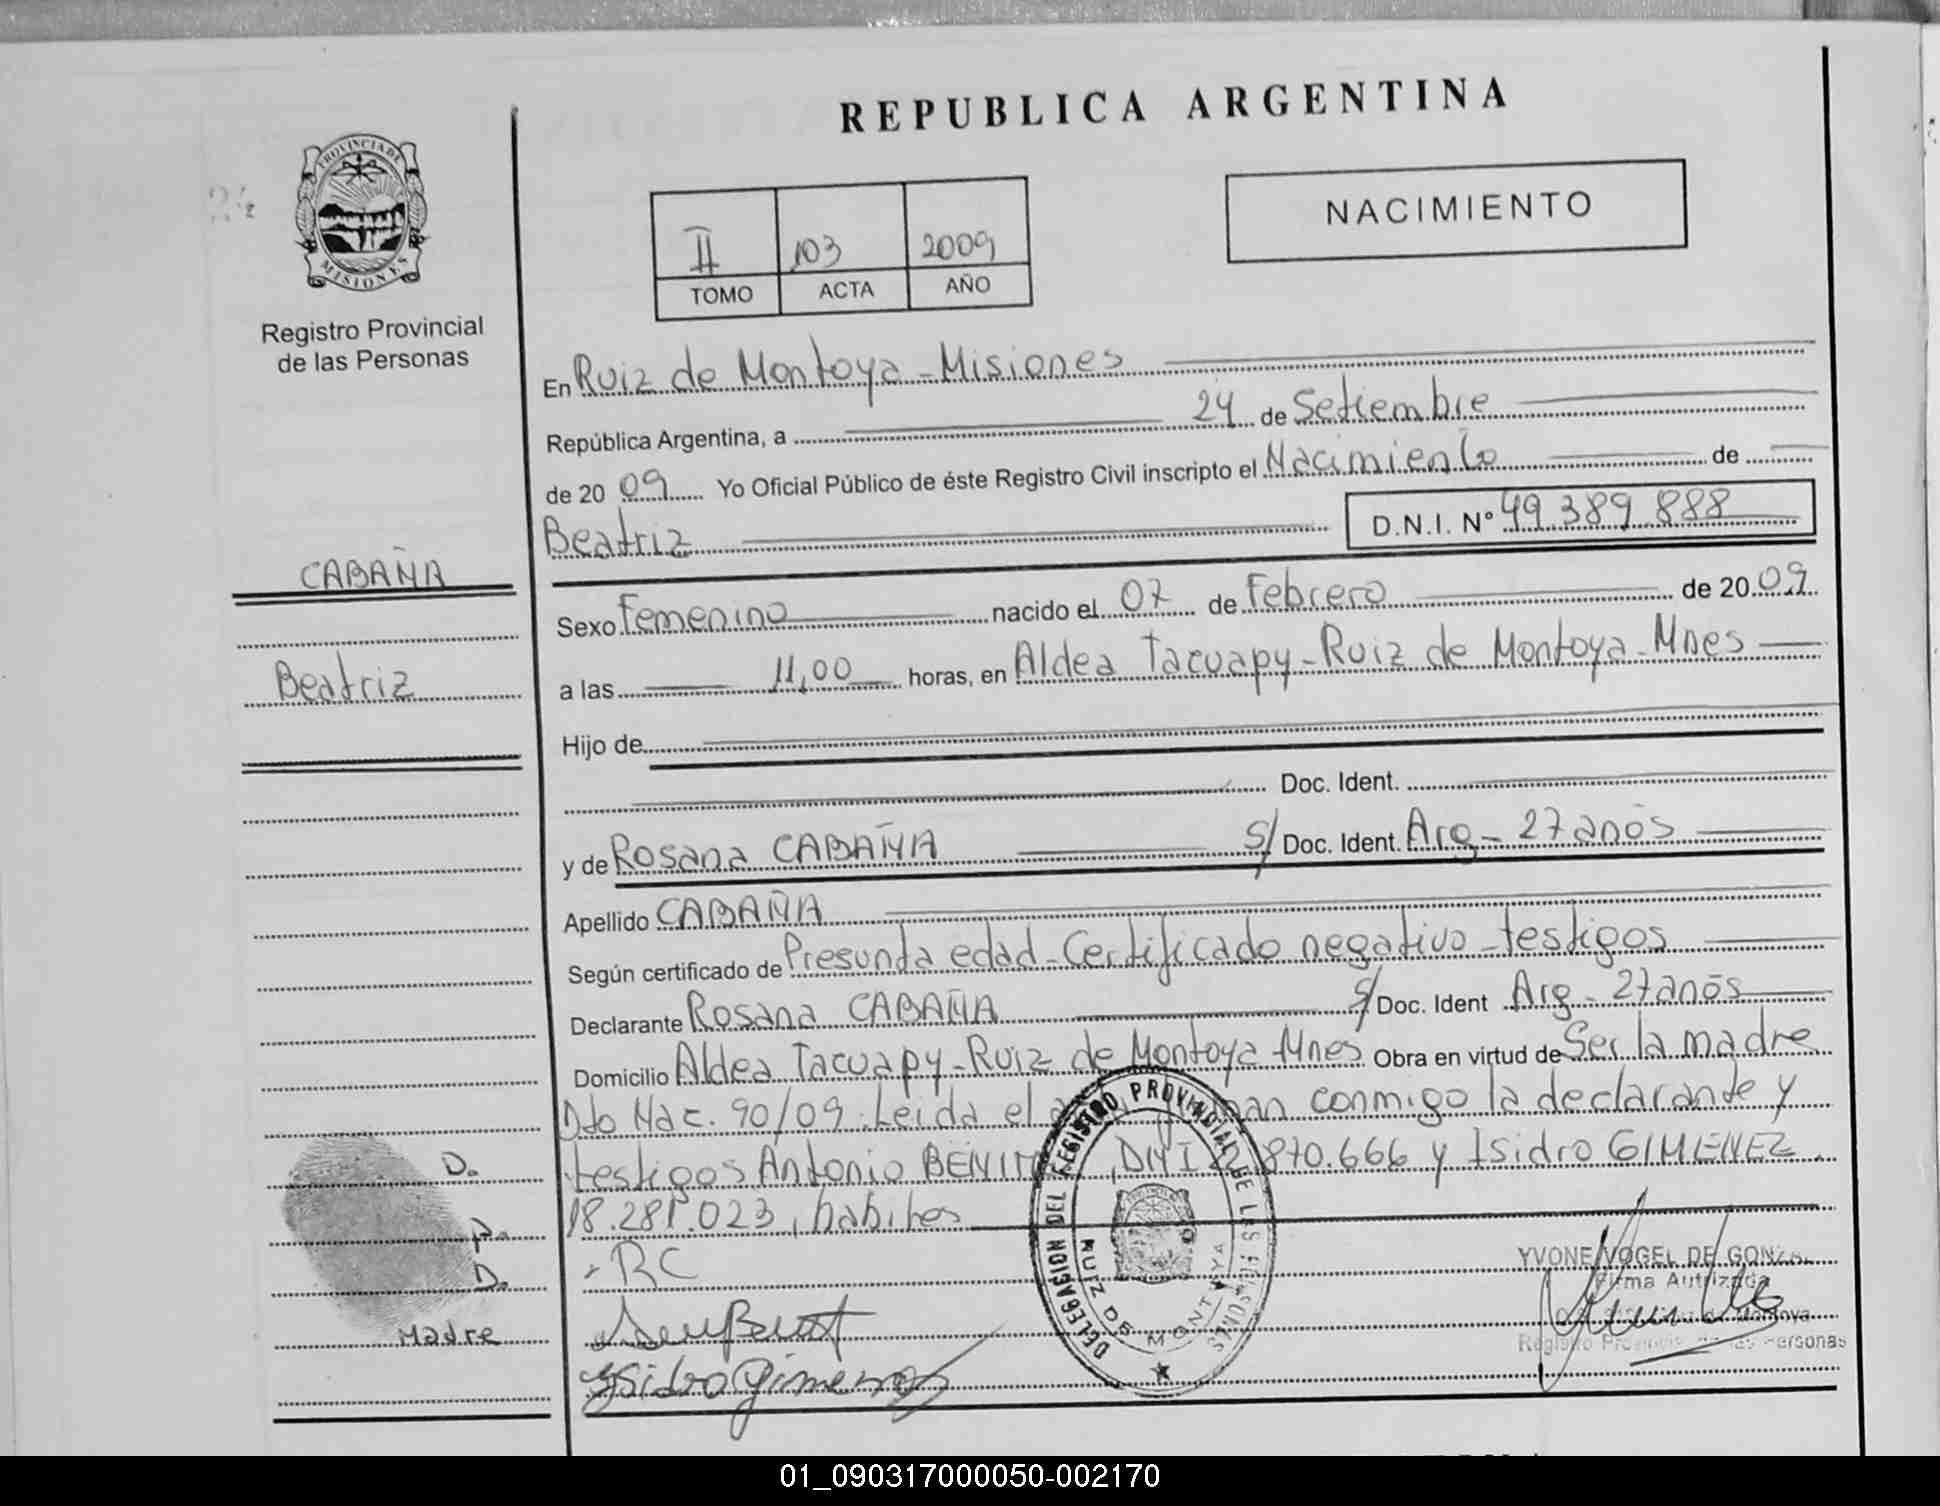 REPUBLICA ARGENTINA
PROVINCIA DE
MISIONES
Registro Provincial
de las Personas
II 103 2009
TOMO ACTA AÑO
NACIMIENTO
En Ruiz de Montoya - Misiones
República Argentina, a 24 de Setiembre
de 2009 Yo Oficial Público de éste Registro Civil inscripto el Nacimiento de
Beatriz D.N.I. Nº 49.389.888
CABAÑA
Beatriz
Sexo Femenino nacido el 07 de Febrero de 2009
a las 11,00 horas, en Aldea Tacuapy - Ruiz de Montoya - Mnes
Hijo de
Doc. Ident.
y de Rosana CABAÑA S/ Doc. Ident. Arg - 27 años
Apellido CABAÑA
Según certificado de Presunta edad - Certificado negativo - testigos
Declarante Rosana CABAÑA S/ Doc. Ident Arg - 27 años
Domicilio Aldea Tacuapy - Ruiz de Montoya - Mnes Obra en virtud de Ser la madre
Dto Nac. 90/09. Leida el conmigo la declarante y
testigos Antonio DNI 870.666 y Isidro GIMENEZ
18.281.023, habiles
D.
P.
D.
Madre
RC
Isidro Gimenez
DELEGACION DEL REGISTRO PROVINCIAL DE LAS PERSONAS
RUIZ DE MONTOYA
YVONE VOGEL DE
Firma Autorizada
Montoya
Registro Provincial de las Personas
01_090317000050-002170